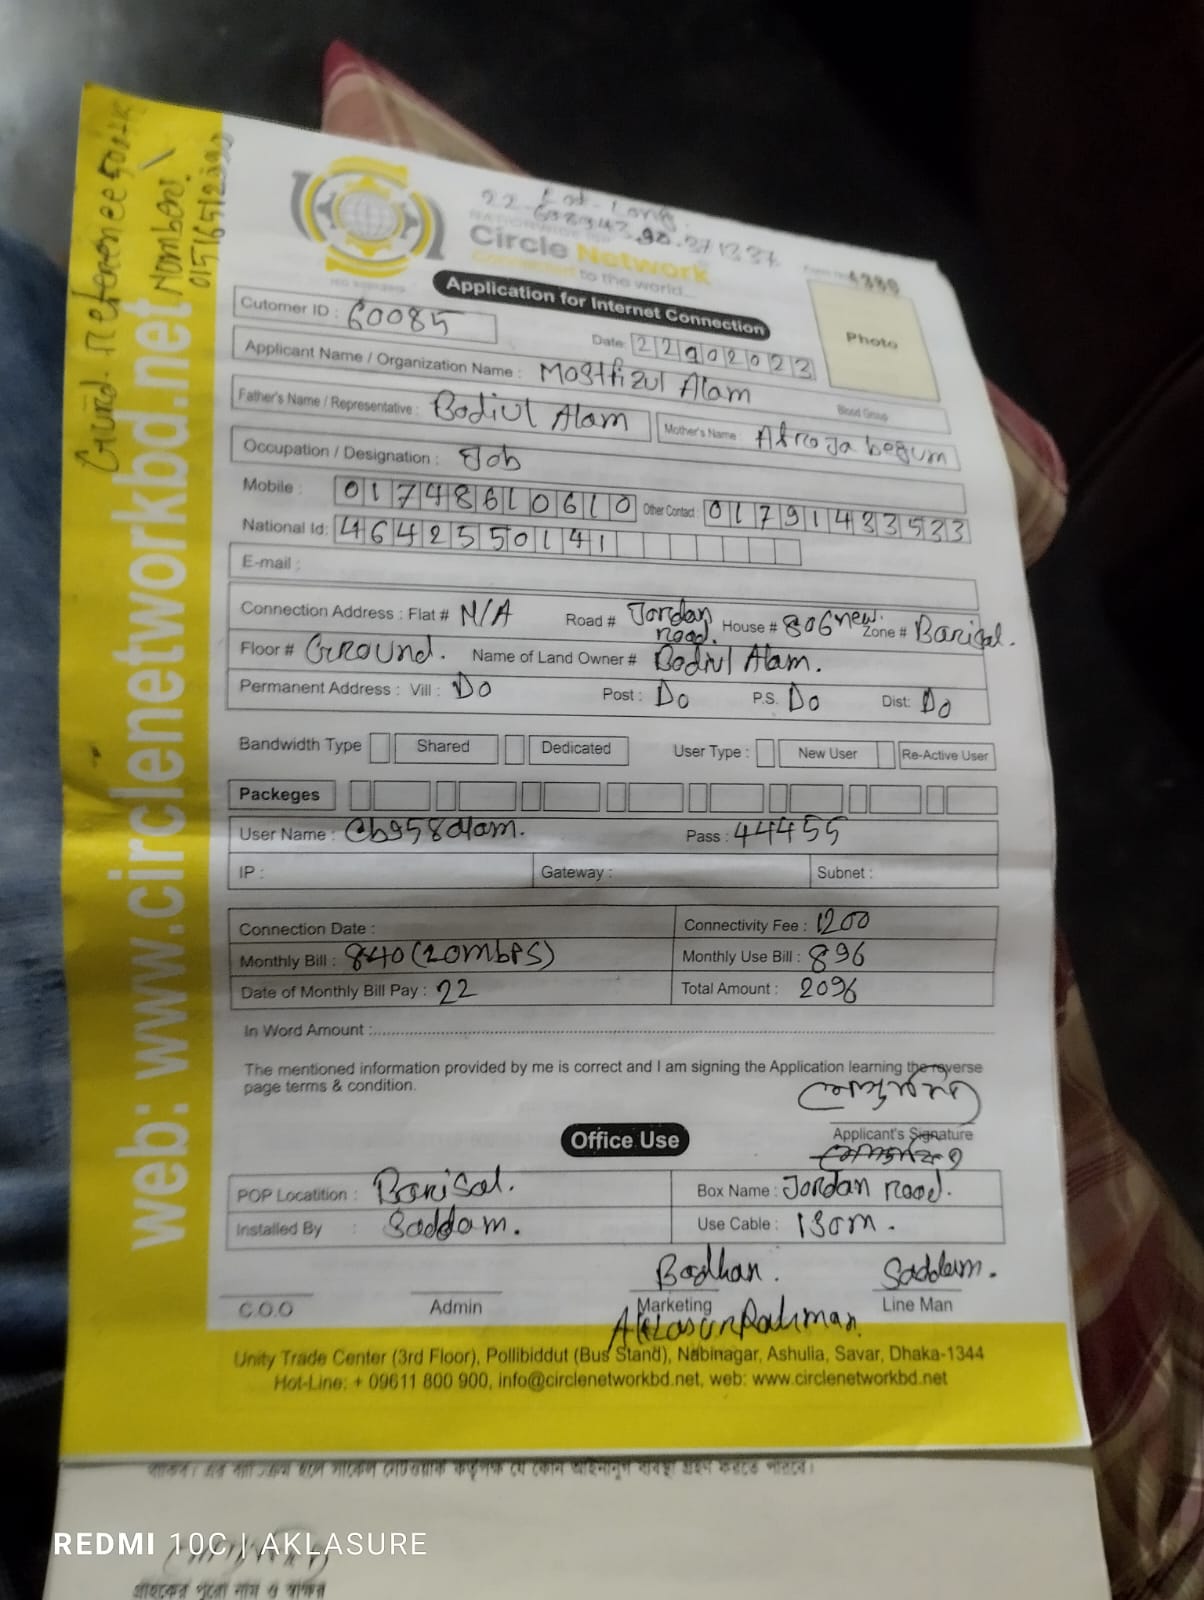 Lat-Long
22.698943,90.371337
Circle Network
Connected to the world...
4339
Application for Internet Connection
Photo
Cutomer ID : 60085
Date: 22902023
Applicant Name / Organization Name : Mostfizul Alam
Blood Group
Father's Name / Representative : Bodiul Alam Mother's Name : Afroja begum
Occupation / Designation : Job
Mobile : 01748610610 Other Contact 01791433533
National Id: 4642550141
E-mail :
Connection Address : Flat # N/A Road # Jordan road. House # 806 new. Zone # Barisal.
Floor # Ground. Name of Land Owner # Bodiul Alam.
Permanent Address : Vill : Do Post : Do P.S. Do Dist: Do
Bandwidth Type Shared Dedicated User Type : New User Re-Active User
Packeges
User Name : Cb958alam. Pass : 44455
IP : Gateway : Subnet :
Connection Date : Connectivity Fee : 1200
Monthly Bill : 840 (20mbps) Monthly Use Bill : 896
Date of Monthly Bill Pay : 22 Total Amount : 2096
In Word Amount :
The mentioned information provided by me is correct and I am signing the Application learning the reverse
page terms & condition.
Applicant's Signature
Office Use
POP Locatition : Barisal. Box Name : Jordan road.
Installed By : Saddam. Use Cable : 130m.
Badhan. Saddam.
C.O.O Admin Marketing Line Man
Unity Trade Center (3rd Floor), Pollibiddut (Bus Stand), Nabinagar, Ashulia, Savar, Dhaka-1344
Hot-Line: + 09611 800 900, info@circlenetworkbd.net, web: www.circlenetworkbd.net
web: www.circlenetworkbd.net
Number:
গ্রাহকের পুরো নাম ও স্বাক্ষর
REDMI 10C | AKLASURE